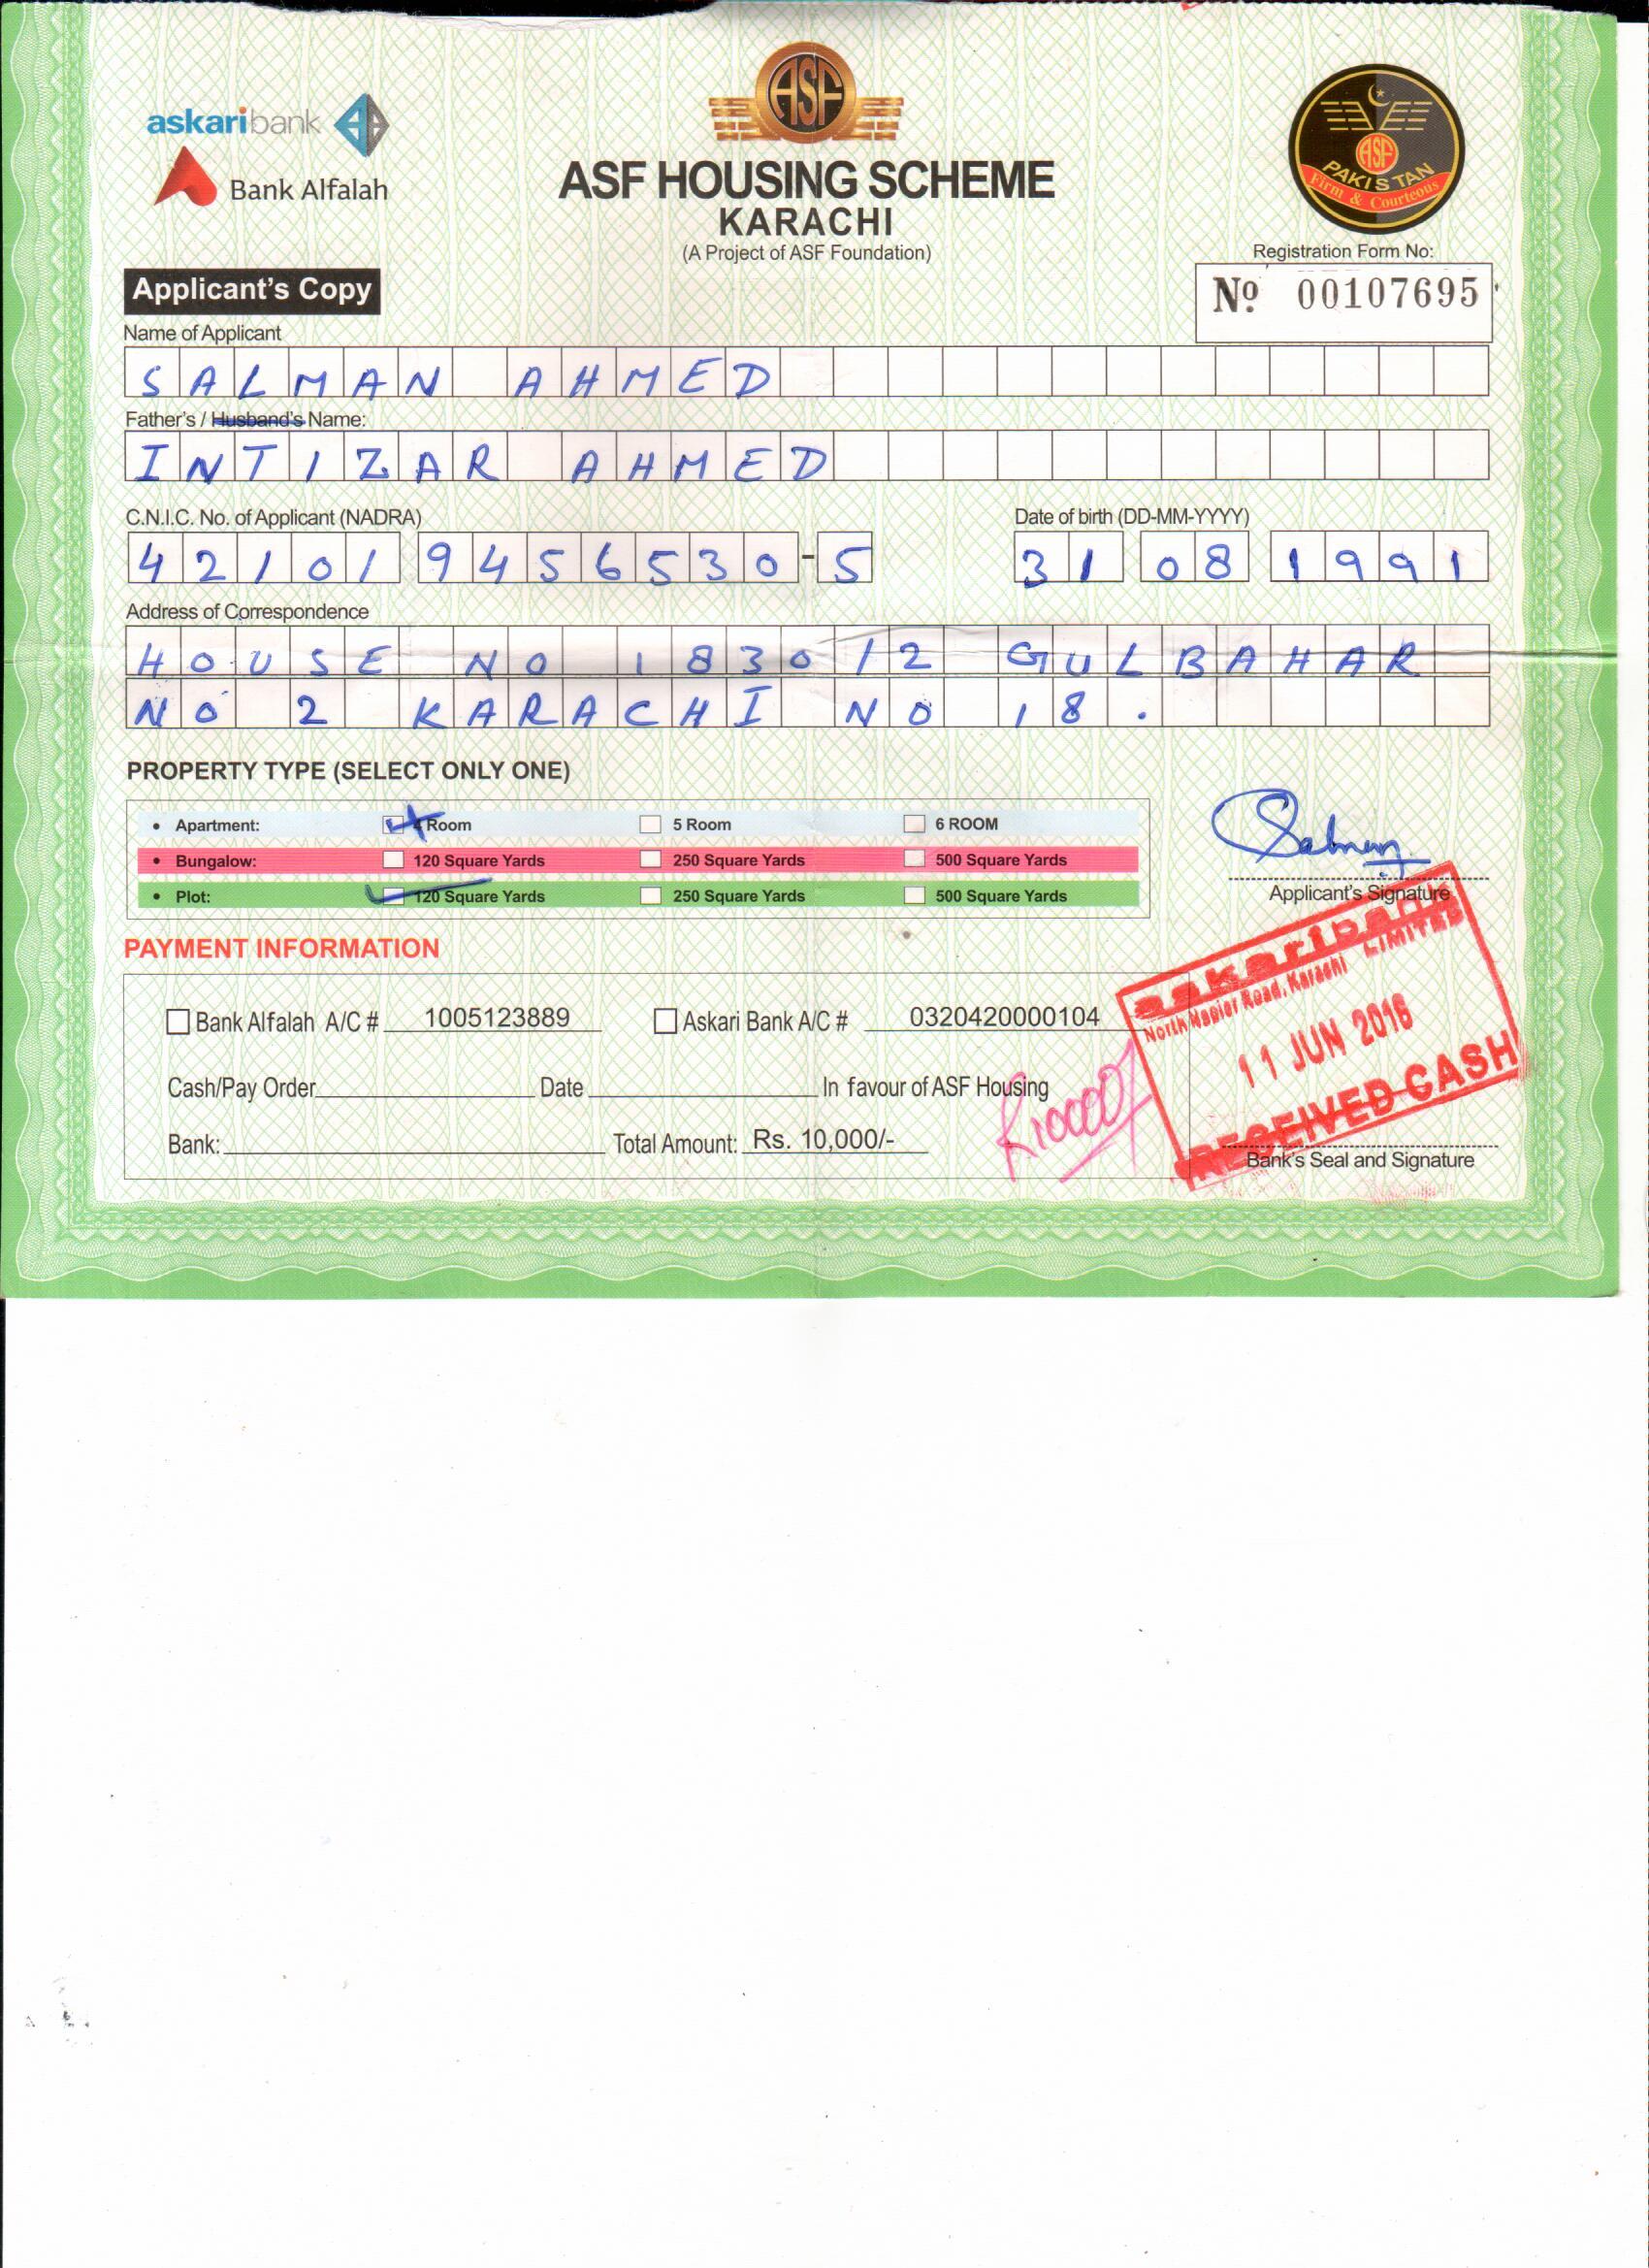 askaribank
Bank Alfalah
ASF
ASF HOUSING SCHEME
KARACHI
(A Project of ASF Foundation)
ASF
PAKISTAN
Firm & Courteous
Registration Form No:
Nº 00107695
Applicant's Copy
Name of Applicant
SALMAN AHMED
Father's / Husband's Name:
INTIZAR AHMED
C.N.I.C. No. of Applicant (NADRA)
Date of birth (DD-MM-YYYY)
42101 9456530-5
31 08 1991
Address of Correspondence
HOUSE NO 1830/2 GULBAHAR
NO 2 KARACHI NO 18.
PROPERTY TYPE (SELECT ONLY ONE)
• Apartment: 4 Room 5 Room 6 ROOM
• Bungalow: 120 Square Yards 250 Square Yards 500 Square Yards
• Plot: 120 Square Yards 250 Square Yards 500 Square Yards
Salman
Applicant's Signature
PAYMENT INFORMATION
Bank Alfalah A/C # 1005123889 Askari Bank A/C # 0320420000104
Cash/Pay Order Date In favour of ASF Housing
Bank: Total Amount: Rs. 10,000/-
askaribank
LIMITED
North Napier Road, Karachi
11 JUN 2016
RECEIVED CASH
Bank's Seal and Signature